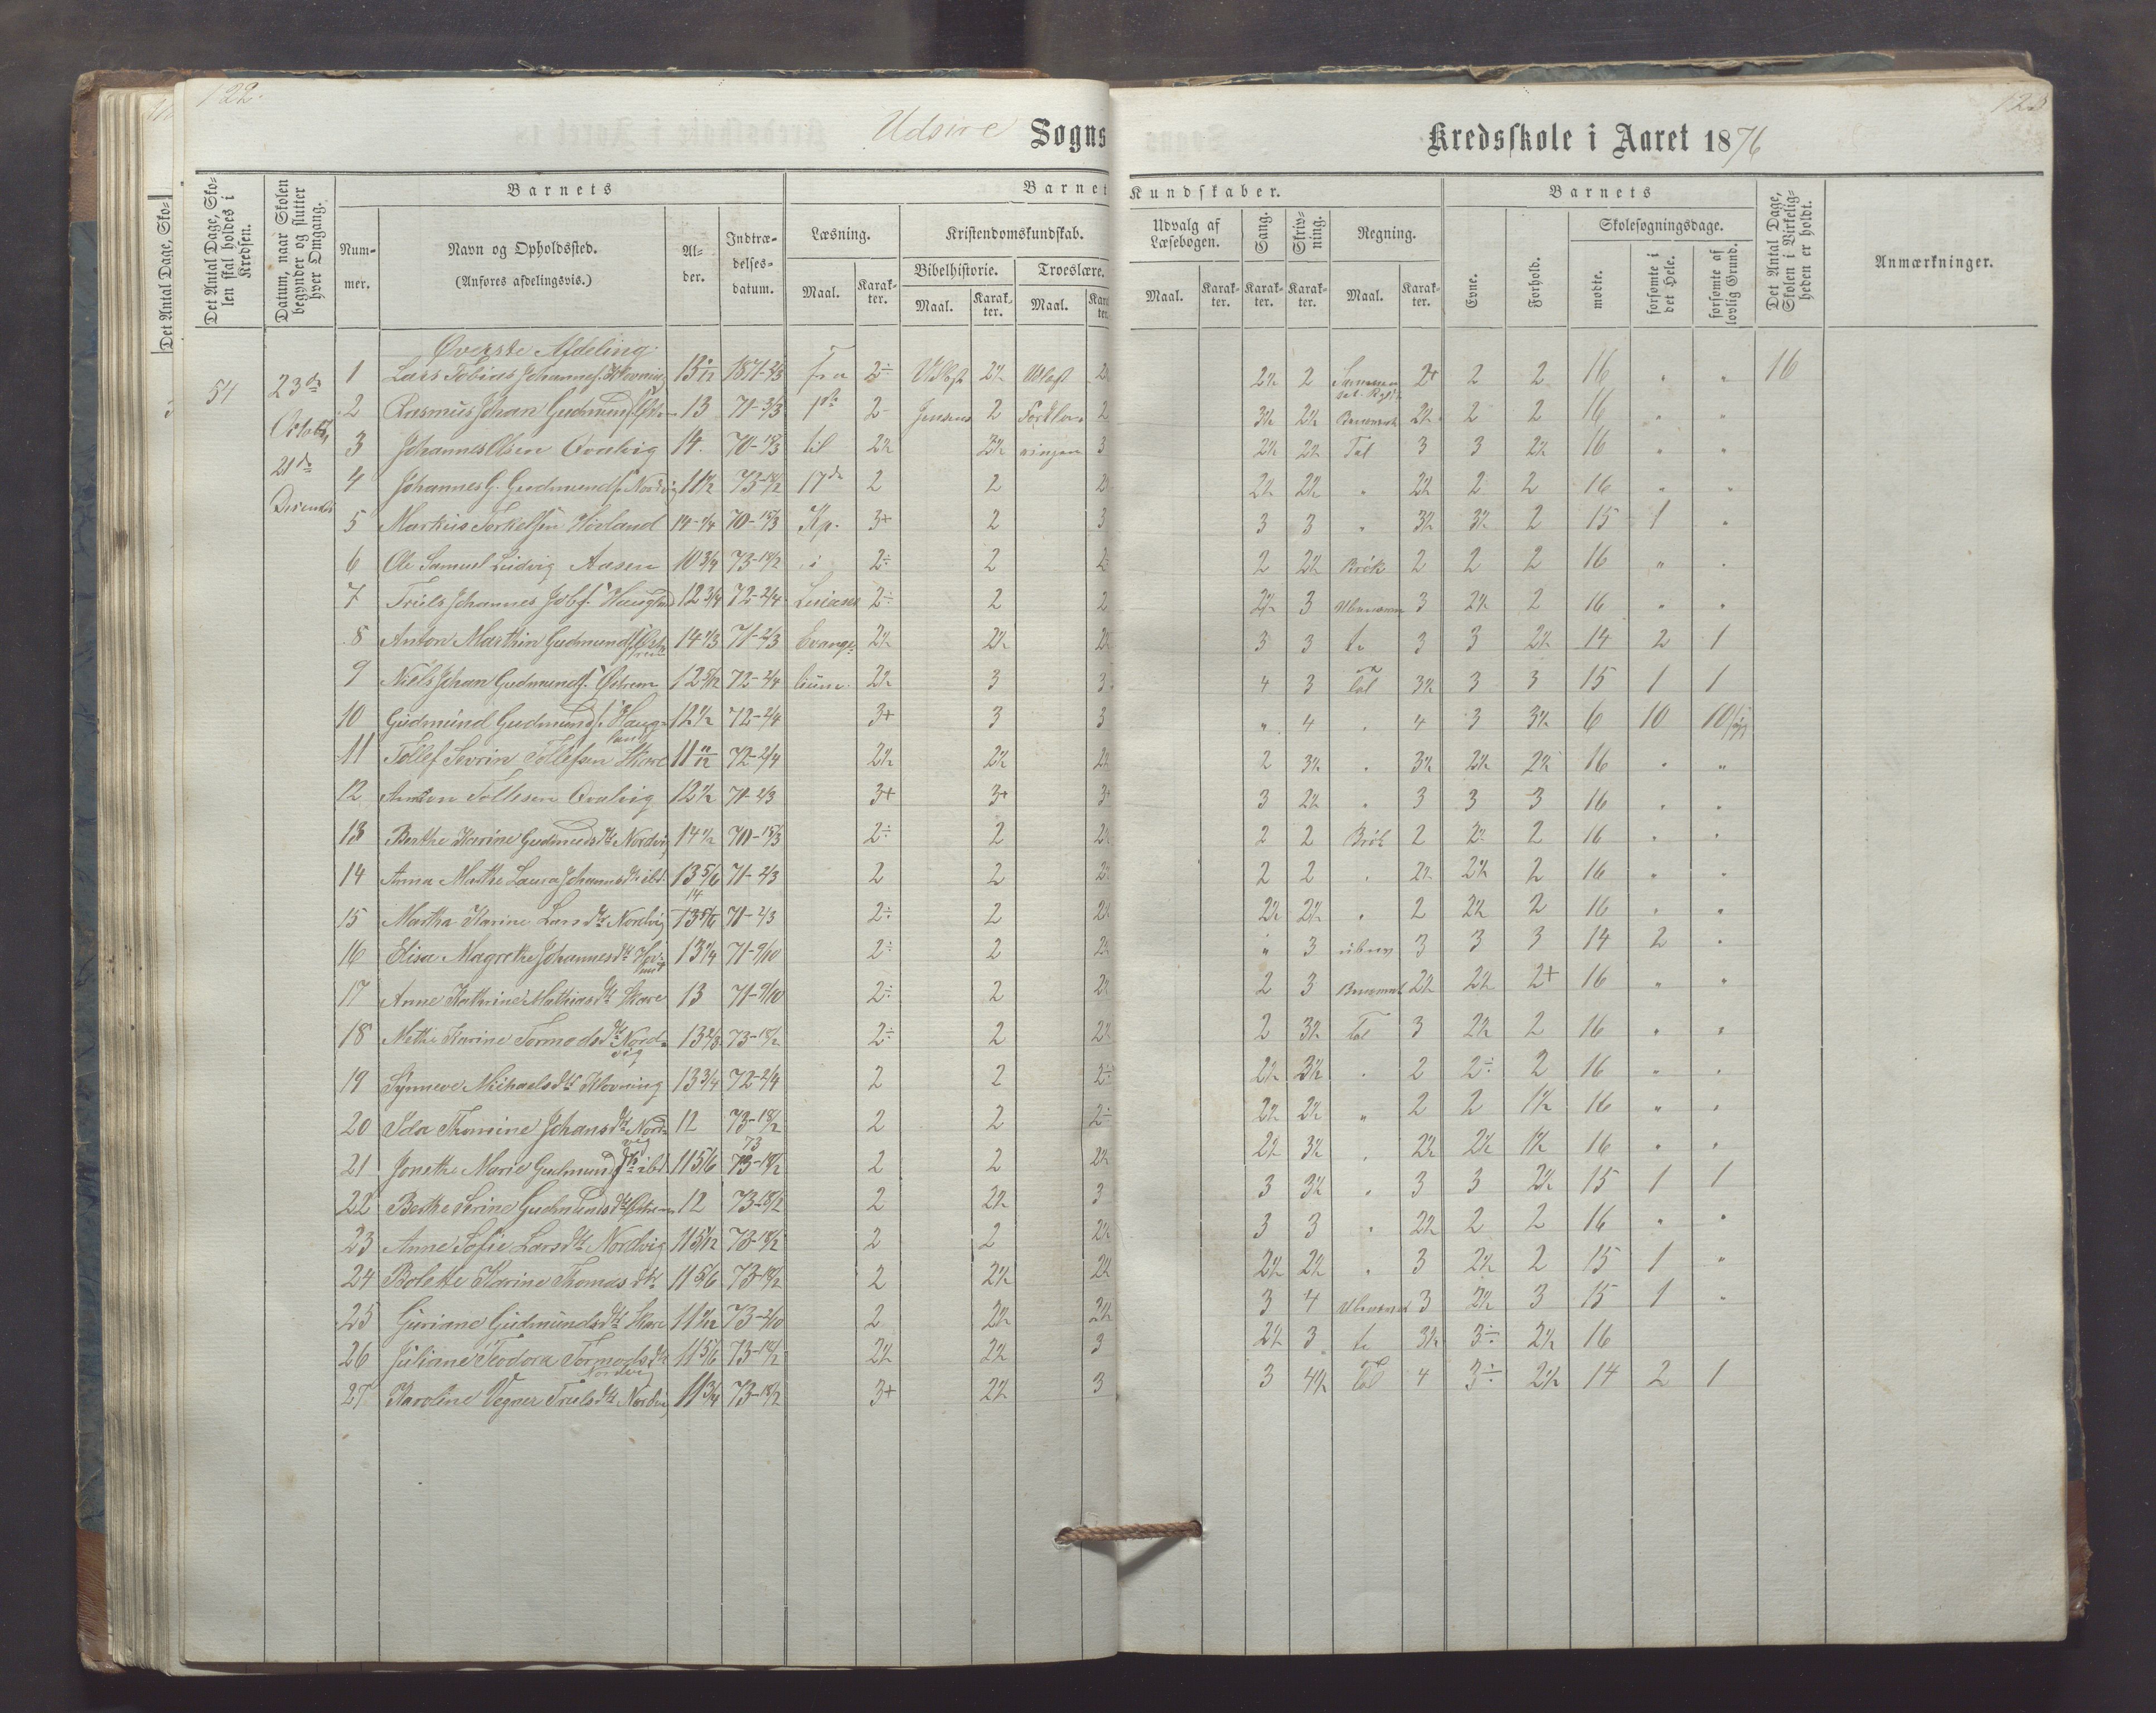 122.
Udsire Sogns Kredsskole i Aaret 1876
Det Antal Dage, Skolen skal holdes i Kredsen.
Datum, naar Skolen begynder og slutter hver Omgang.
Barnets
Nummer.
Navn og Opholdssted.
(Anføres afdelingsvis.)
Alder.
Indtrædelsesdatum.
Barnets Kundskaber.
Læsning.
Maal.
Karakter.
Kristendomskundskab.
Bibelhistorie.
Maal.
Karakter.
Troeslære.
Maal.
Udvalg af Læsebogen.
Maal.
Karakter.
Sang.
Karakter.
Skrivning.
Karakter.
Regning.
Maal.
Karakter.
Barnets
Evne.
Forhold.
Skolesøgningsdage.
mødte.
forsømte i det Hele.
forsømte af lovlig Grund.
Det Antal Dage, Skolen i Virkeligheden er holdt.
Anmærkninger.
Øverste Afdeling.
54 23de
1 Lars Tobias Johannes. Klovning 1871-2/3 Fra 2÷ 2½ 2½ 2 2+ 2 2 16 " " 16
2 Rasmus Johan Gudmunds. 13 71-2/3 1ste 2- Jensens 2 Forklaringen 2 3½ 2½ 2½ 2 2 16 " "
21de
3 Johannes Olsen Qvalvig 14. 70-15/3 til 2½ 2½ 3 2½ 2½ Tal 3 3 2½ 16 " "
4 Johannes G. Gudmunds. Nordvig 11½ 73-18/2 17de 2 2 2½ 2½ " 2½ 2 2 16 " "
5 Markus Torkelsen Hovland 14-1/4 70-15/3 Kp. 3+ 2 3 3 3 " 3½ 3½ 2 15 1 "
6 Ole Samuel Ludvig Aasen 10 3/4 73-18/2 i 2÷ 2 2 2 2½ Brök 2 2 2 16 " "
7 Truls Johannes Haugland 12 3/4 72-2/4 2÷ 2 2 2½ 3 3 2½ 2 16 " "
8 Anton Marthin Gudmunds. 14 1/3 71-2/3 Evangelium. 2½ 2½ 2½ 3 3 3 3 2½ 14 2 1
9 Niels Johan Gudmunds. Östrem 72-2/4 2½ 3 3 4 3 Tal 3½ 3 3 15 1 1
10 Gudmund Gudmunds. Haugland 12½ 72-2/4 3+ 3 3 " 4 " 4 3 3½ 6 10 10
11 Tollef Sevrin Tollefsen Skare 72-2/4 2½ 2½ 2½ 2 3½ " 3½ 2½ 2½ 16 " "
12 Tollesen Qvalvig 12½ 71-2/3 3+ 3+ 3+ 3 2½ " 3 3 3 16 " "
13 Berthe Karine Gudmundsdt. Nordvig 14½ 70-15/3 2÷ 2 2½ 2 2 Brök 2 2½ 2 16 " "
14 Anna Marthe Laura Johannesdt. ibd. 13 5/6 71-2/3 2 2 2½ 2 2 " 2½ 2½ 2 16 " "
15 Martha Karine Larsdt. Nordvig 71-2/3 2÷ 2 2½ 2½ 2½ " 2 2½ 2 16 " "
16 Elisa Magrethe Johannesdt. 13 1/4 71-9/10 2÷ 2 2½ " 3 3 3 3 14 2 "
17 Anne Kathrine Mathiasdt. Skare 13 71-9/10 2÷ 2 2½ 2 3 2½ 2½ 2+ 16 " "
18 Methe Karine Tormodsdt. Nordvig 13 2/3 73-18/2 2÷ 2 2½ 2 3½ Tal 3 2½ 2 16 " "
19 Synneve Michaelsdt. Klovning 13 3/4 72-2/4 2 2 2÷ 2½ 3½ " 2 2÷ 2 16 " "
20 Ida Thomine Johansdt. Nordvig 12 73-18/2 2 2 2÷ 2½ 2½ " 2 2 1½ 16 " "
21 Jonethe Marie Gudmundsdt. ibd. 11 5/6 73-18/2 2 2 2½ 2½ 3½ " 2½ 2½ 1½ 16 " "
22 Berthe Serine Gudmundsdt. Östrem 12 73-18/2 2 2½ 3 3 3½ " 3 3 2½ 15 1 1
23 Anne Sofie Larsdt. Nordvig 73-18/2 2 2 2½ 3 3 " 2½ 2 2 16 " "
24 Bolette Karine Thomasdt. 11 5/6 73-18/2 2 2½ 2½ 2½ 2½ " 3 2½ 2 15 1 "
25 Guriane Gudmundsdt. Skare 73-2/10 2 2½ 2½ 3 4 3 2½ 3 15 1 "
26 Juliane Teodora Tormodsdt. Nordvig 11 5/6 73-18/2 2½ 2½ 3 2½ 3 3½ 3÷ 2½ 16
27 Karoline Vegner Trulsdt. Nordvig 11 3/4 73-18/2 3+ 2½ 3 3 4½ Tal 4 3÷ 2½ 14 2 1